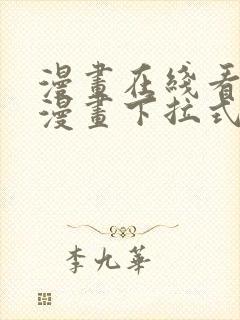 漫畫在綫看
漫畫下拉式
李九華